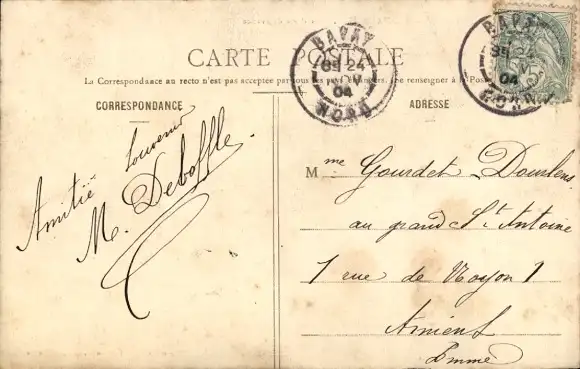 CARTE POSTALE
La Correspondance au recto n'est pas acceptée par tous les pays étrangers. (Se renseigner à la Poste)
CORRESPONDANCE
ADRESSE
BAVAY
24
04
NORD
BAVAY
04
NORD
Amitié souvenir
M. Deboffle.
Mme Gourdet-Doullens
au grand St Antoine
1 rue de Noyon 1
Amiens
Somme